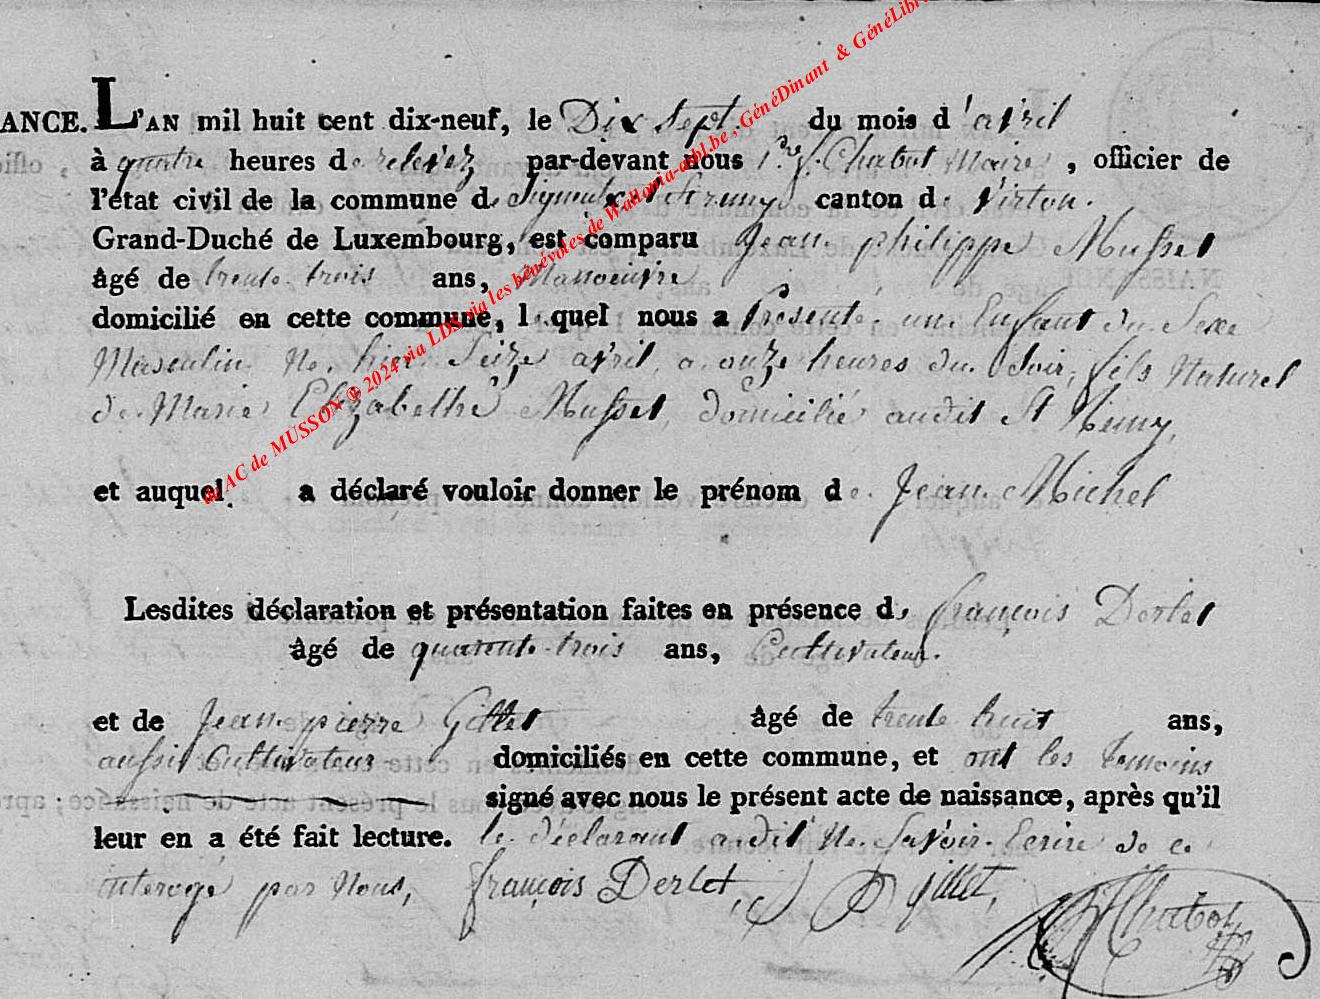 ANCE. L'AN mil huit cent dix-neuf, le Dix Sept du mois d'avril
à quatre heures de relevez par-devant nous Pre J. Chabot Maire, officier de
l'état civil de la commune de Signeulx St Remy canton de Virton.
Grand-Duché de Luxembourg, est comparu Jean philippe Musset
âgé de trente trois ans, Manoeuvre
domicilié en cette commune, lequel nous a Presenté un Enfant du Sexe
Masculin Né hier Seize avril a onze heures du Soir, fils Naturel
de Marie Elizabethe Musset, domicilié audit St Remy,
et auquel a déclaré vouloir donner le prénom de Jean Michel
Lesdites déclaration et présentation faites en présence de françois Derlet
âgé de quarente-trois ans, Cultivateur.
et de Jean pierre Gillet âgé de trente huit ans,
aussi Cultivateur domiciliés en cette commune, et ont les temoins
signé avec nous le présent acte de naissance, après qu'il
leur en a été fait lecture. le déclarant a dit Ne Savoir Ecrire de ce
interogé par Nous,
françois Derlet, JP gillet, Chabot
de AC de MUSSON ® 2024 via LDS via les bénévoles de Wallonia-asbl.be, GénéDinant & GénéLibr